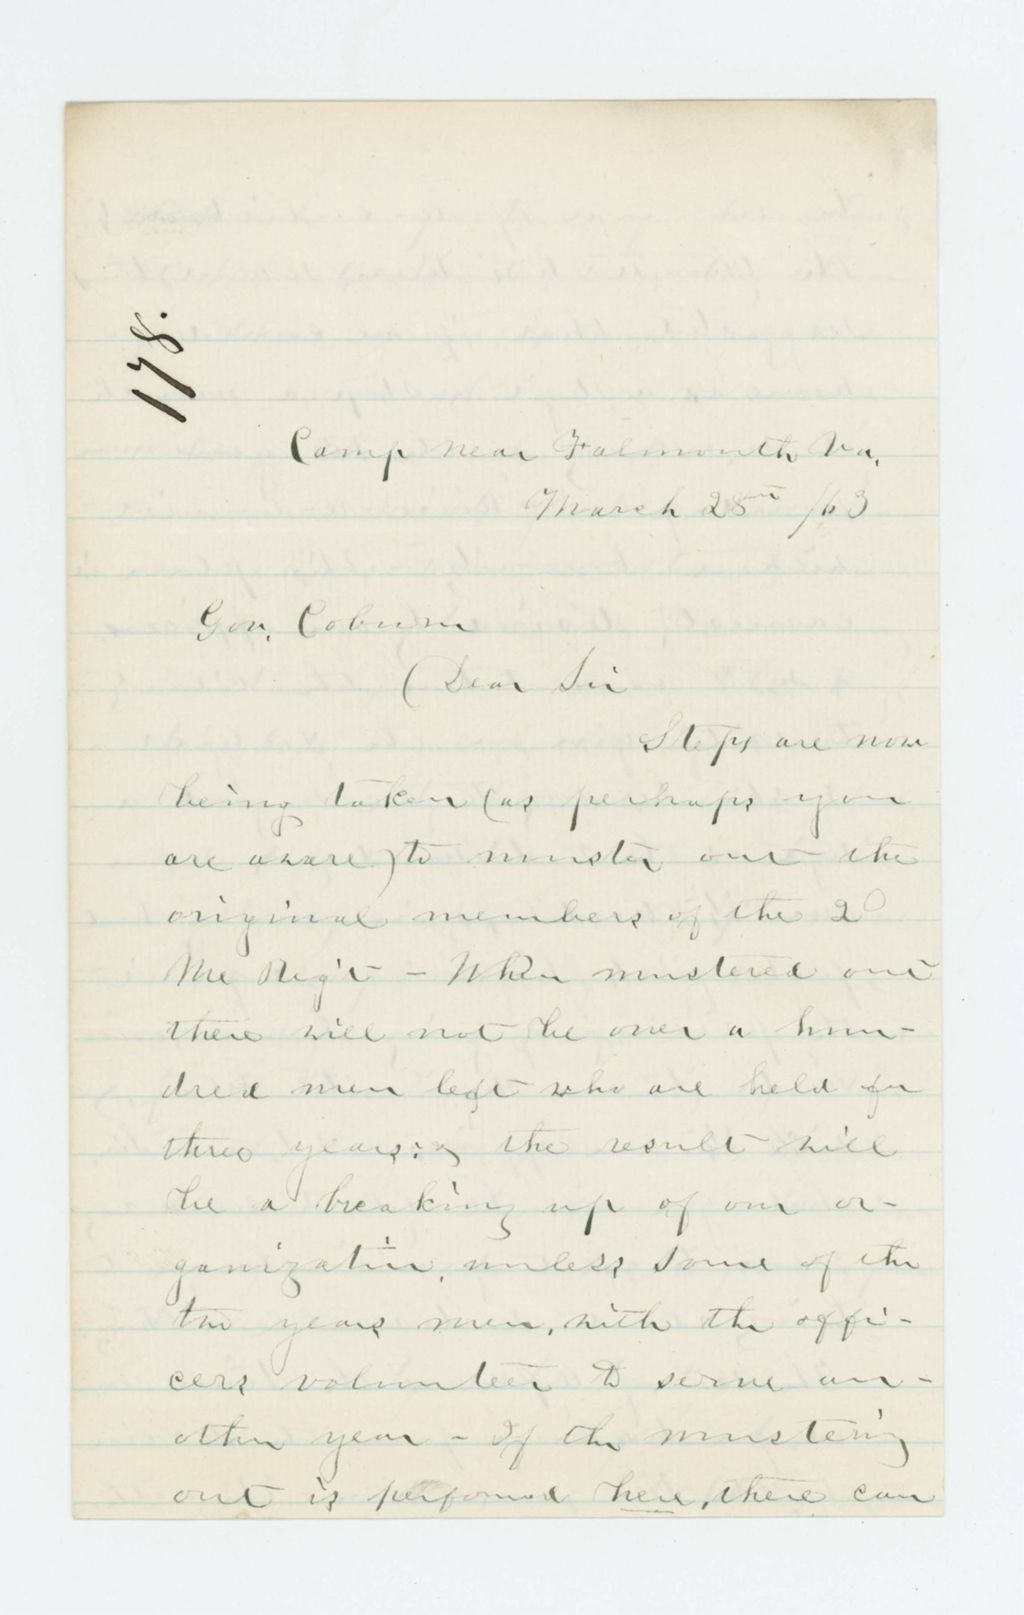 178.
Camp near Falmouth Va.
March 28th /63
Gov. Coburn
Dear Sir
Steps are now
being taken (as perhaps you
are aware) to muster out the
original members of the 2d
Me Reg't - When mustered out
there will not be over a hun-
dred men left who are held for
three years; & the result will
be a breaking up of our or-
ganization, unless some of the
two years men, with the offi-
cers volunteer to serve an-
other year - If the mustering
out is performed here, there can